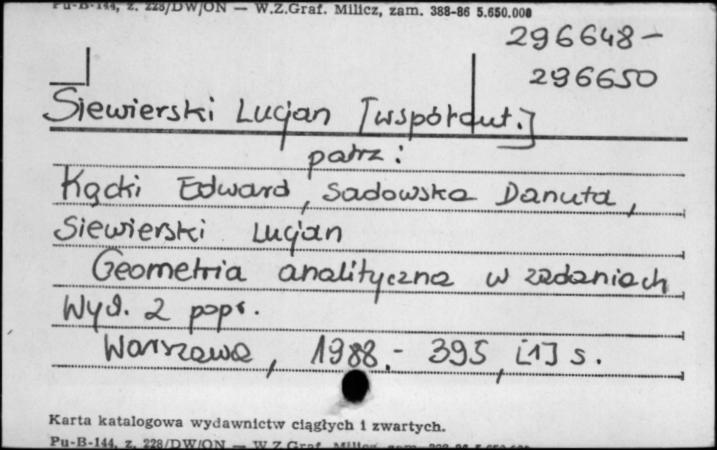 Pu-B-144, z. 228/DW/ON — W.Z.Graf. Milicz, zam. 388-86 5.650.000
296648-
296650
Siewierski Lucjan [współaut.]
patrz:
Kącki Edward, Sadowska Danuta,
Siewierski Lucjan
Geometria analityczna w zadaniach
Wyd. 2 popr.
Warszawa, 1988.- 395, [1] s.
Karta katalogowa wydawnictw ciągłych i zwartych.
Pu-B-144, z. 228/DW/ON — W.Z.Graf. Milicz, zam.